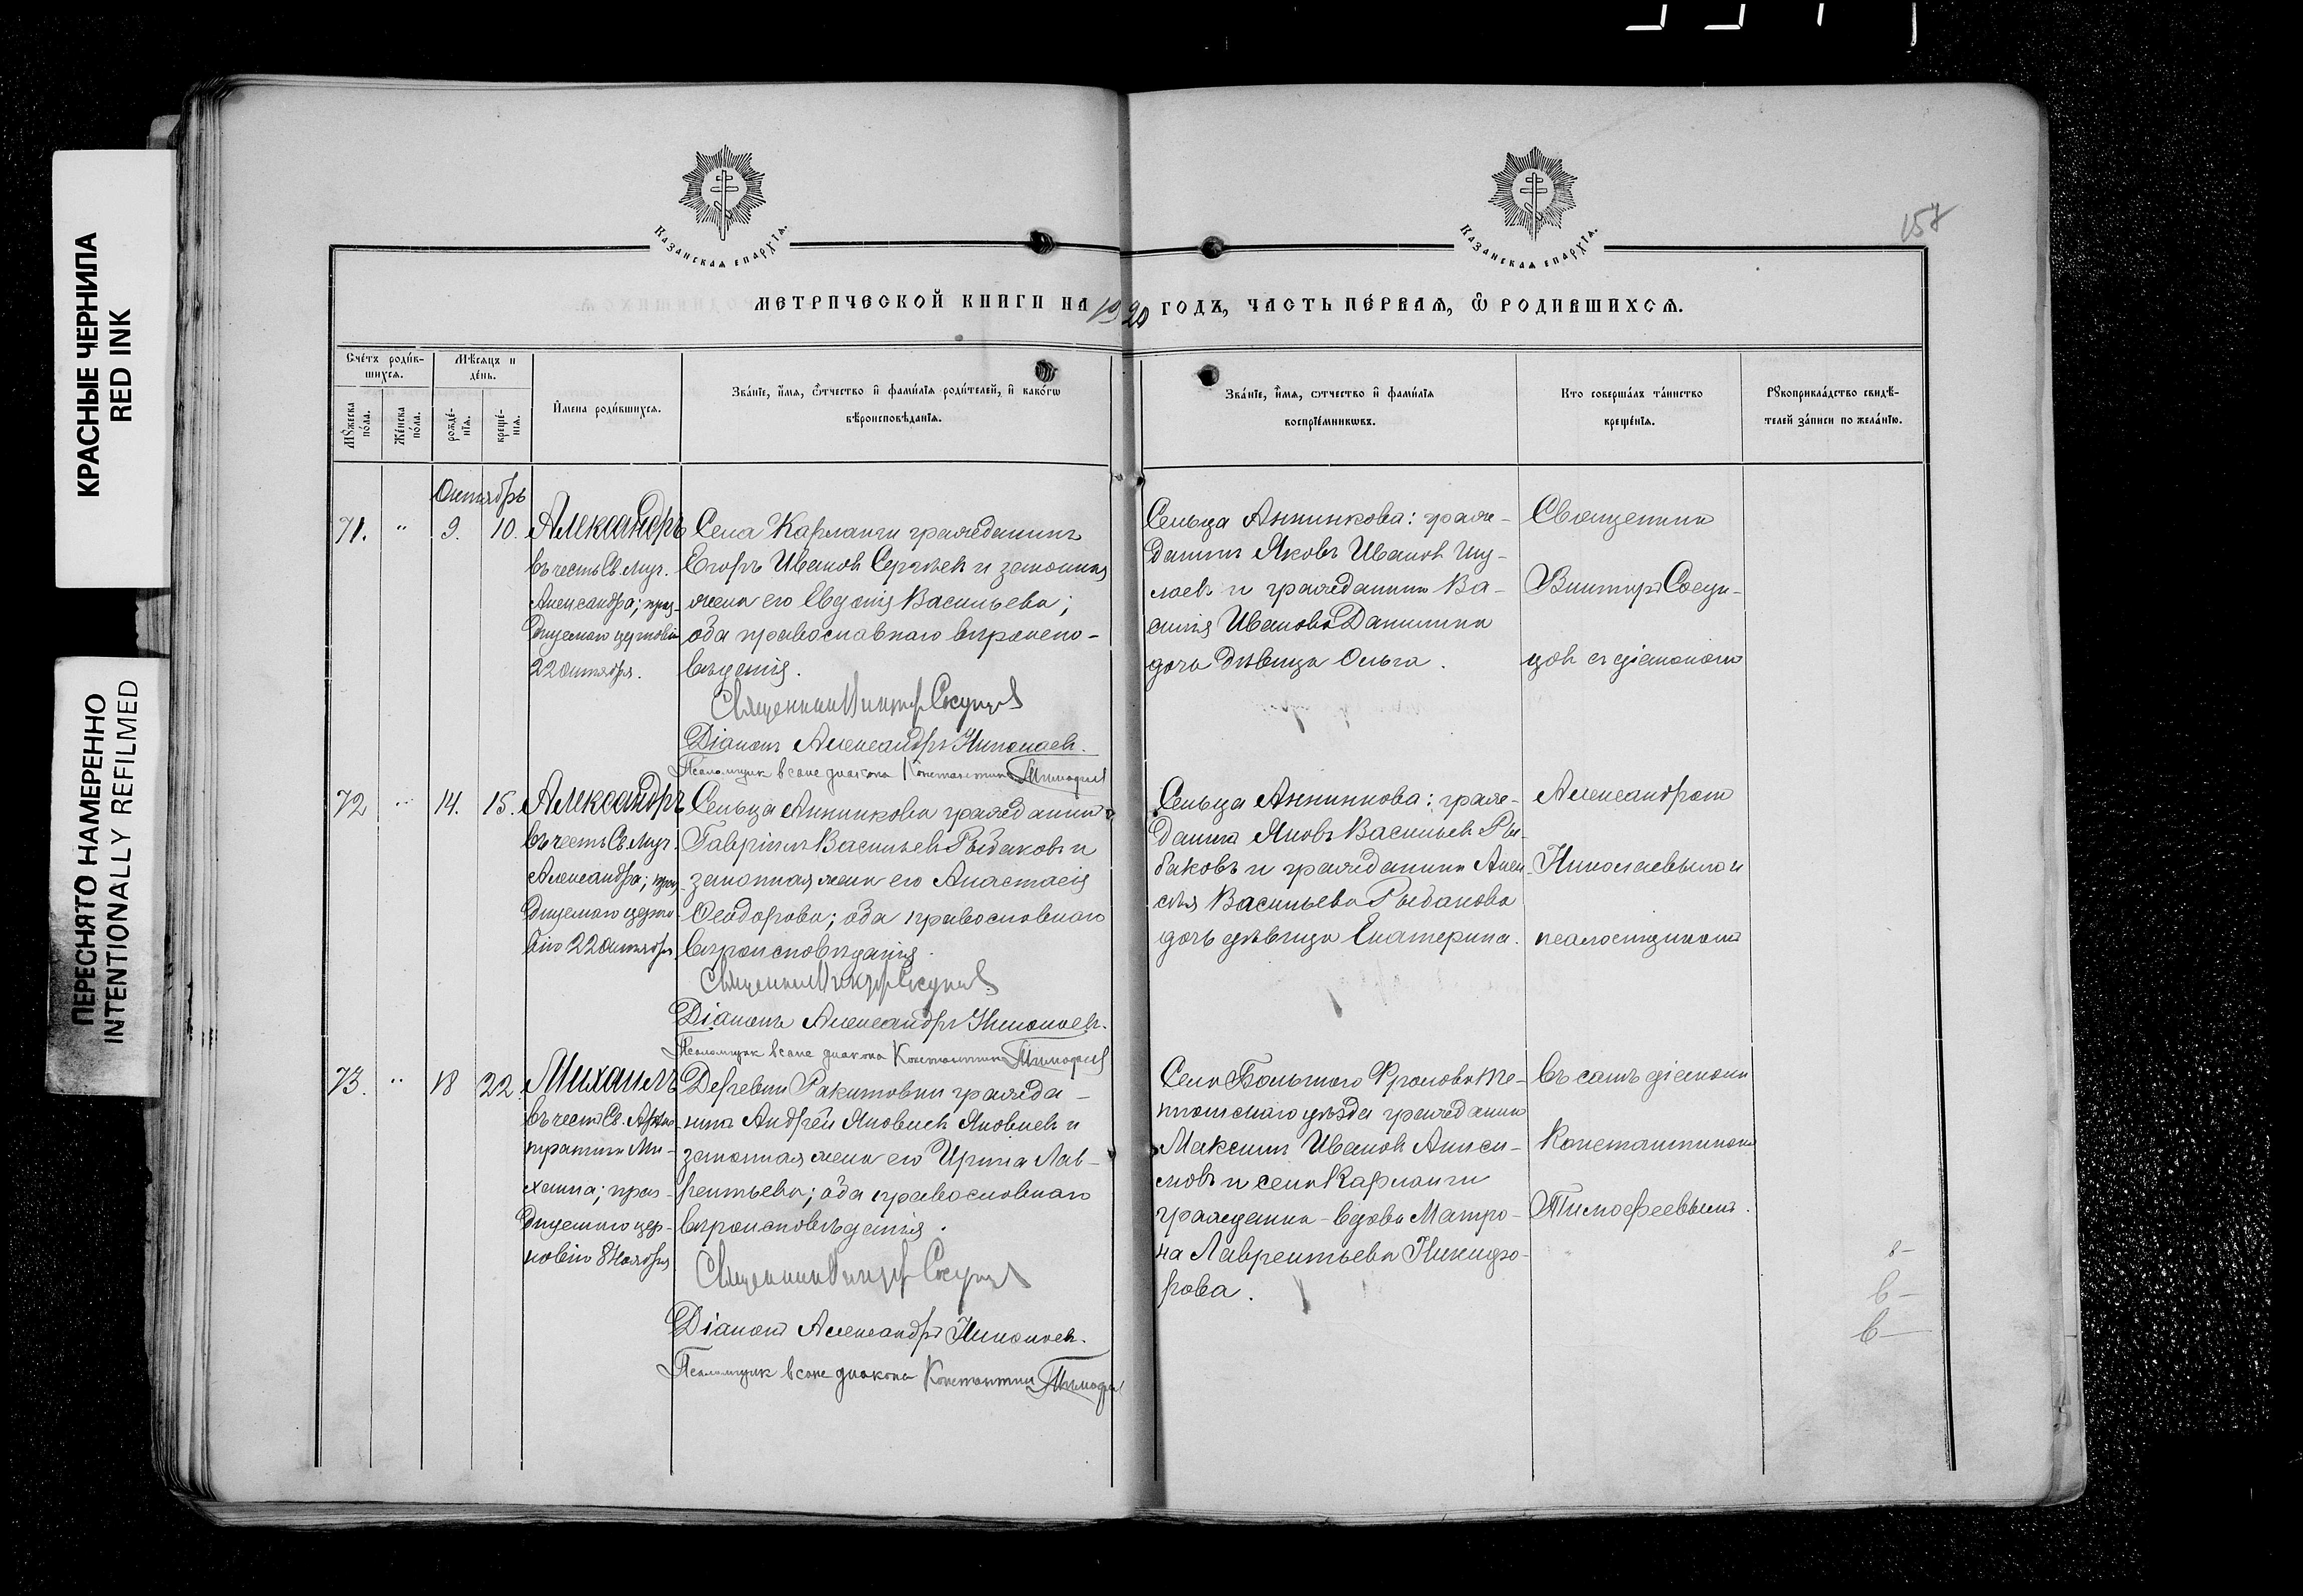 КРАСНЫЕ ЧЕРНИЛА
RED INK
ПЕРЕСНЯТО НАМЕРЕННО
INTENTIONALLY REFILMED
Казанская епархїя.
Казанская епархїя.
МЕТРИЧЕСКОЙ КНИГИ НА 1920 ГОДЪ, ЧАСТЬ ПЕРВАЯ, Ѿ РОДИВШИХСЯ.
Счётъ роди́вшихся.
Мѣсяцъ и де́нь.
Мꙋ́жеска по́ла.
Же́нска по́ла.
рожде́нїя.
креще́нїя.
И́мена роди́вшихся.
Зва́нїе, и́мя, ѻ́тчество и фами́лїя роди́телей, и како́гѡ
вѣроисповѣ́данїя.
Зва́нїе, и́мя, ѻтчество и фами́лїя
воспрїе́мникѡвъ.
Кто соверша́лъ та́инство
креще́нїя.
Рꙋкоприкла́дство свидѣ́-
телей за́писи по жела́нїю.
Октябрь
71. " 9. 10. Александръ
въ честь Св. муч.
Александра; праз-
днуемаго церковію
22 октября.
Села Карланги гражданинъ
Егоръ Иванов Сергѣев и законная
жена его Евдокія Васильева;
оба православнаго вѣроиспо-
вѣданія.
Священник Виктор Сосунцов
Діаконъ Александръ Николаев.
Псаломщик в сане диакона Константин Тимофеев
Сельца Анникова: граж-
данин Яковъ Иванов
и гражданина Ва-
силія Иванова Данилина
дочь дѣвица Ольга.
Священник
Викторъ Сосун-
цов с діакономъ
72 " 14. 15. Александръ
въ честь Св. муч.
Александра; праз-
днуемаго церко-
вію 22 октября
Сельца Анникова гражданинъ
Гавріилъ Васильев Рыбаковъ и
законная жена его Анастасія
Ѳеодорова; оба православнаго
вѣроисповѣданія.
Священник Виктор Сосунцов
Діаконъ Александръ Николаев.
Псаломщик в сане диакона Константин Тимофеев
Сельца Анникова: граж-
данин Яковъ Васильев Ры-
баковъ и гражданина Алек-
сѣя Васильева Рыбакова
дочь дѣвица Екатерина.
Александромъ
Николаевым и
псаломщикомъ
73. " 18 22. Михаилъ
въ честь Св. Архи-
стратига Ми-
хаила; праз-
днуемаго цер-
ковію 8 ноября
Деревни Ракитовки гражда-
нинъ Андрей Яковлев Яковлев и
законная жена его Ирина Лав-
рентьева; оба православнаго
вѣроисповѣданія.
Священник Виктор Сосунцов
Діаконъ Александръ Николаев.
Псаломщик в сане диакона Константин Тимофеев
Села Большого Фролова Те-
тюшского уѣзда гражданин
Максим Иванов Аниси-
мовъ и села Карланги
гражданка - вдова Матро-
на Лаврентьева Никифо-
рова.
въ санѣ діакона
Константином
Тимофеевым.